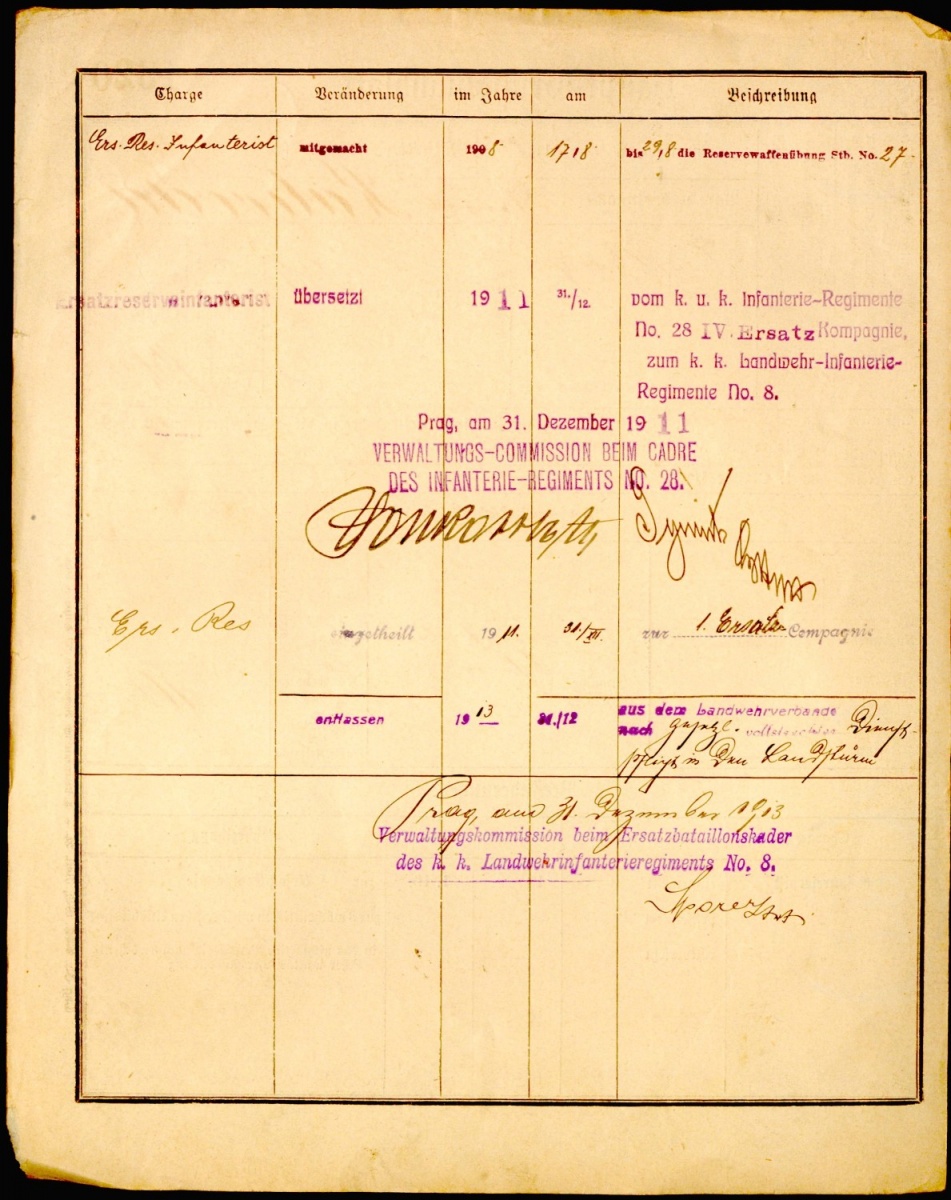 Charge Veränderung im Jahre am Beschreibung
Ers. Res. Infanterist mitgemacht 1908 17/8 bis 29/8 die Reservewaffenübung Stb. No. 27
Ersatzreserveinfanterist übersetzt 1911 31./12. vom k. u. k. Infanterie-Regimente
No. 28 IV. Ersatz Kompagnie,
zum k. k. Landwehr-Infanterie-
Regimente No. 8.
Prag, am 31. Dezember 1911
VERWALTUNGS-COMMISSION BEIM CADRE
DES INFANTERIE-REGIMENTS NO. 28.
Ers. Res eingetheilt 1911. 31./XII. zur 1. Ersatz- Compagnie
entlassen 1913 31./12 aus dem Landwehrverbande
nach gesetzl. vollstreckter Dienst-
pflicht in den Landsturm
Prag, am 31. Dezember 1913
Verwaltungskommission beim Ersatzbataillonskader
des k. k. Landwehrinfanterieregiments No. 8.